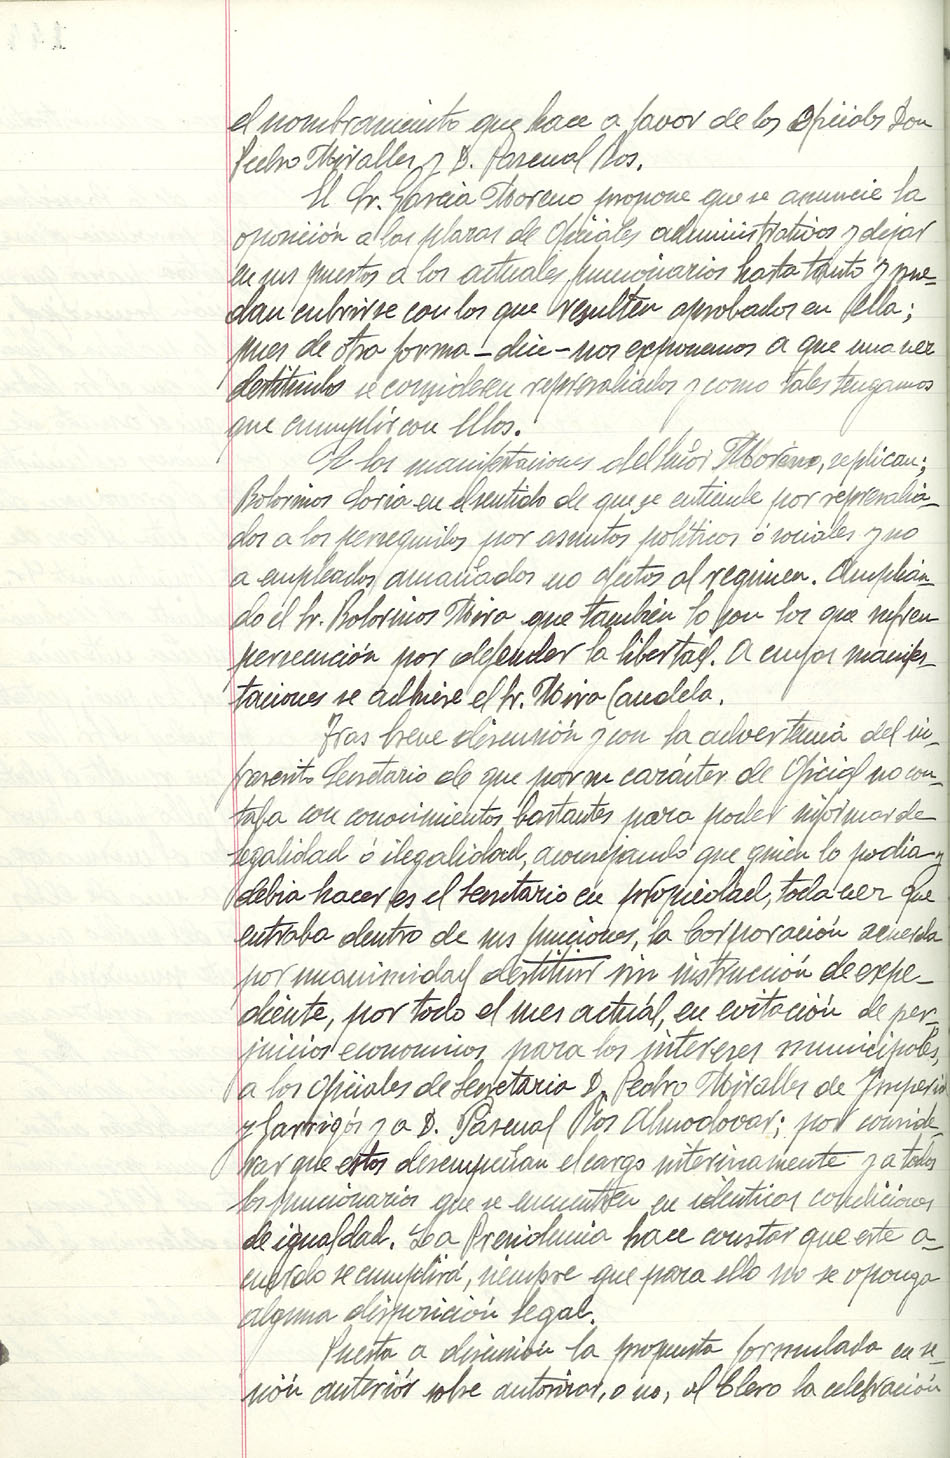 el nombramiento que hace a favor de los Oficiales Don
Pedro Miralles y D. Pascual Ros.
El Sr. García Moreno propone que se anuncie la
oposición a las plazas de Oficiales administrativos y dejar
en sus puestos a los actuales funcionarios hasta tanto y pue-
dan cubrirse con los que resulten aprobados en ella;
pues de otra forma - dice - nos exponemos a que una vez
destituidos se consideren represaliados y como tales tengamos
que cumplir con ellos.
A las manifestaciones del Señor Moreno, replican;
Bolorinos Soria en el sentido de que se entiende por represalia-
dos a los perseguidos por asuntos políticos ó sociales y no
a empleados amañados no afectos al regimen. Amplian-
do el Sr. Bolorinos Mira que también lo son los que sufren
persecución por defender la libertad. A cuyas manifes-
taciones se adhiere el Sr. Mira Candela.
Tras breve discusión y con la advertencia del in-
frascrito Secretario de que por su carácter de Oficial no con-
taba con conocimientos bastantes para poder informar de
legalidad ó ilegalidad, aconsejando que quien lo podia y
debia hacer es el Secretario en propiedad, toda vez que
entraba dentro de sus funciones, la Corporación acuerda
por unanimidad destituir sin instrucción de expe-
diente, por todo el mes actuál, en evitación de per-
juicios economicos para los intereses municipales,
a los Oficiales de Secretaria D. Pedro Miralles de Imperial
y Garrigós y a D. Pascual Ros Almodovar; por conside-
rar que estos desempeñan el cargo interinamente y a todos
los funcionarios que se encuentren en identicas condiciones
de igualdad. La Presidencia hace constar que este a-
cuerdo se cumplirá, siempre que para ello no se oponga
alguna disposición legal.
Puesta a discusión la propuesta formulada en se-
sión anteriór sobre autorizar, o no, al Clero la celebración